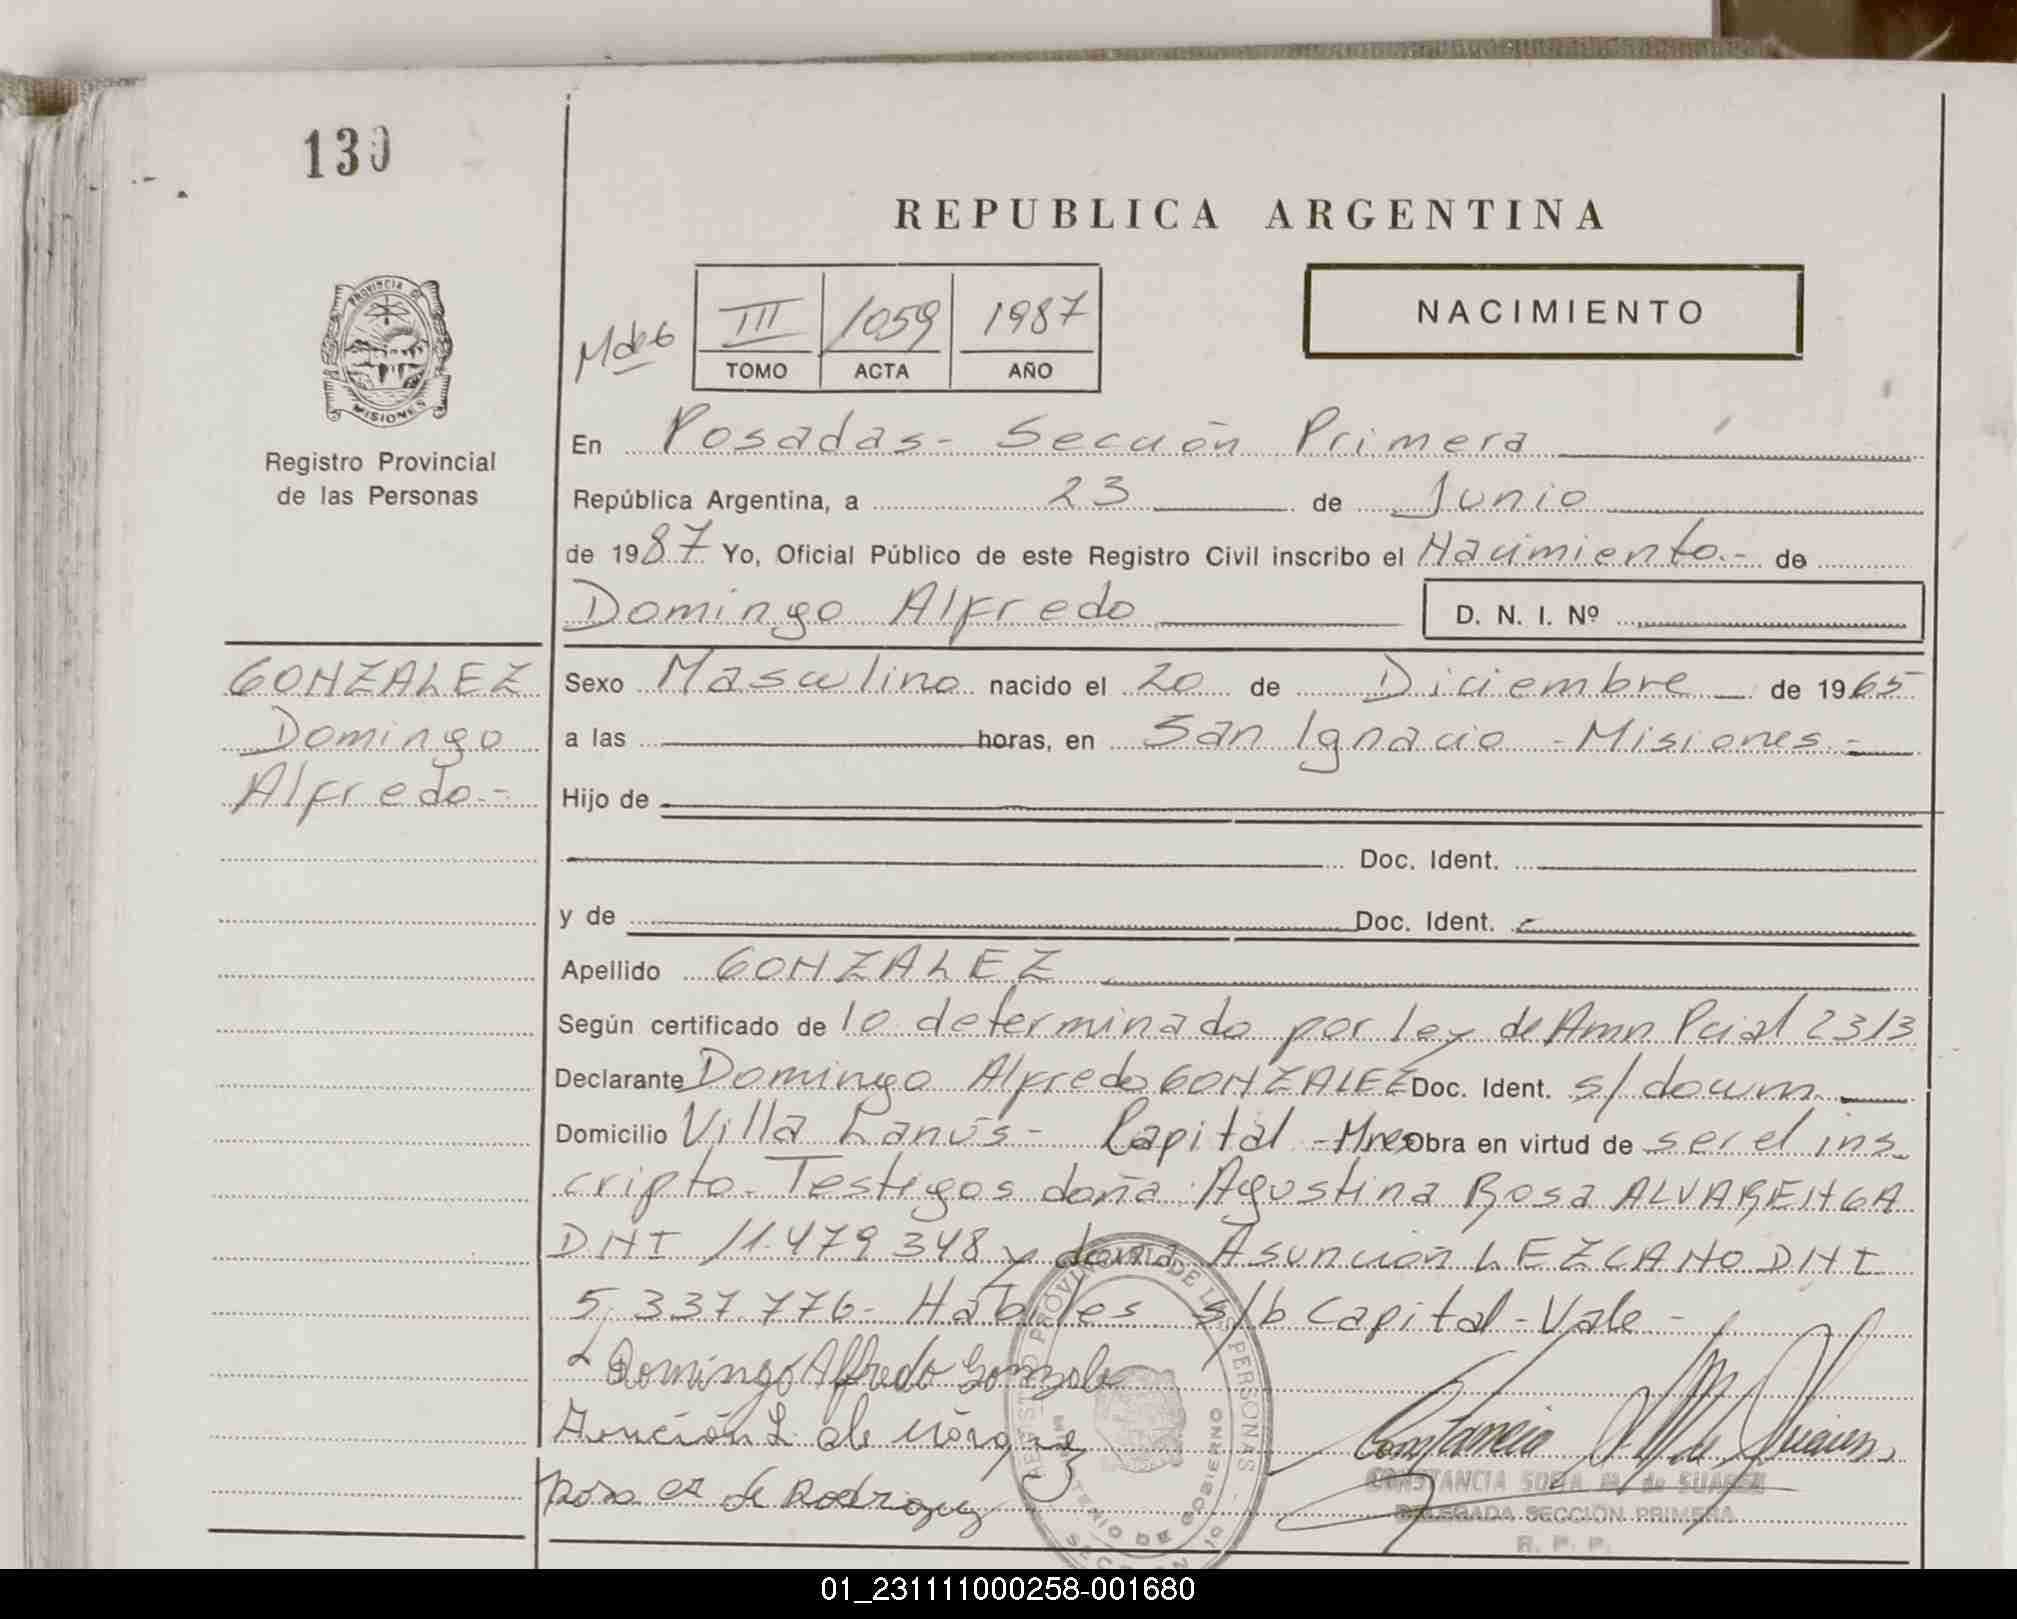 130
REPUBLICA ARGENTINA
NACIMIENTO
III 1059 1987
TOMO ACTA AÑO
PROVINCIA DE
MISIONES
Registro Provincial
de las Personas
En Posadas- Sección Primera
República Argentina, a 23 de Junio
de 1987 Yo, Oficial Público de este Registro Civil inscribo el Nacimiento.- de
Domingo Alfredo D. N. I. Nº
GONZALEZ
Domingo
Alfredo.-
Sexo Masculino nacido el 20 de Diciembre de 1965
a las horas, en San Ignacio - Misiones.-
Hijo de
Doc. Ident.
y de Doc. Ident.
Apellido GONZALEZ
Según certificado de lo determinado por ley de Amn Pcial 2313
Declarante Domingo Alfredo GONZALEZ Doc. Ident. s/ docum.
Domicilio Villa Lanús- Capital - Mnes Obra en virtud de ser el ins-
cripto. Testigos doña Agustina Rosa ALVARENGA
DNI 11.479 348 y doña Asunción LEZCANO DNI
5.337.776- Hábiles s/b Capital - Vale -
Domingo Alfredo Gonzalez
Asunción L de
Rosa de Rodriguez
REGISTRO PROVINCIAL DE LAS PERSONAS
MINISTERIO DE GOBIERNO
CONSTANCIA SOFIA M. de SUAREZ
DELEGADA SECCIÓN PRIMERA
R. P. P.
01_231111000258-001680